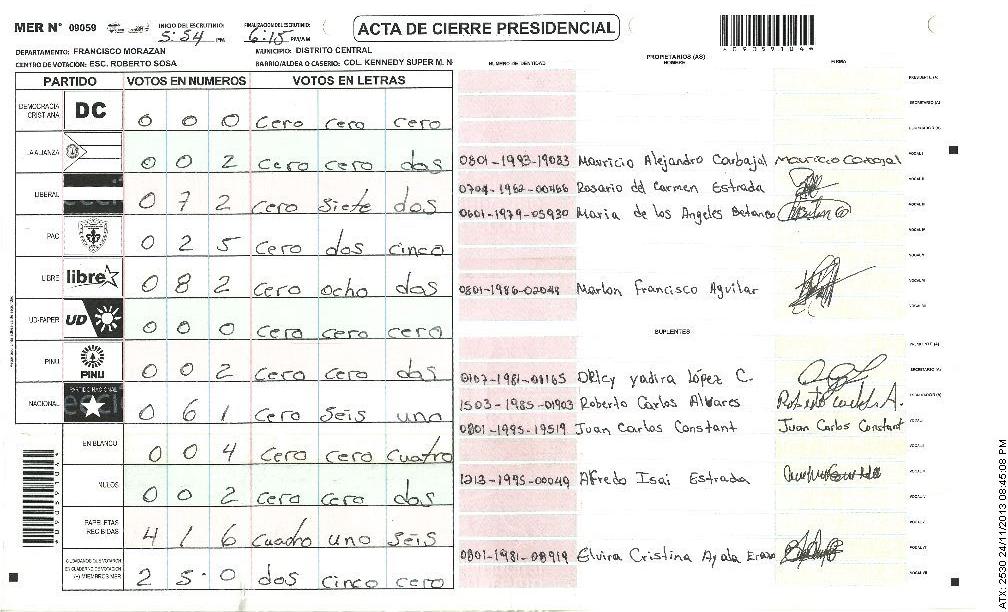 MER N° 09059 INICIO DEL ESCRUTINIO: 5:54 PM FINALIZACIÓN DEL ESCRUTINIO: 6:15 PM/AM ACTA DE CIERRE PRESIDENCIAL
DEPARTAMENTO: FRANCISCO MORAZAN MUNICIPIO: DISTRITO CENTRAL
CENTRO DE VOTACION: ESC. ROBERTO SOSA BARRIO/ALDEA O CASERIO: COL. KENNEDY SUPER M. N
NUMERO DE IDENTIDAD PROPIETARIOS (AS) NOMBRE FIRMA
PARTIDO VOTOS EN NUMEROS VOTOS EN LETRAS
DEMOCRACIA CRISTIANA DC 0 0 0 cero cero cero
LA ALIANZA 0 0 2 cero cero dos
LIBERAL 0 7 2 cero siete dos
PAC 0 2 5 cero dos cinco
LIBRE libre 0 8 2 cero ocho dos
UD-FAPER UD 0 0 0 cero cero cero
PINU PINU 0 0 2 cero cero dos
NACIONAL PARTIDO NACIONAL 0 6 1 cero seis uno
EN BLANCO 0 0 4 cero cero cuatro
NULOS 0 0 2 cero cero dos
PAPELETAS RECIBIDAS 4 1 6 cuadro uno seis
2 5 0 dos cinco cero
0801-1993-19083 Mauricio Alejandro Carbajal Mauricio Carbajal
0704-1962-00466 Rosario del Carmen Estrada
0601-1979-05930 Maria de los Angeles Betanco
0801-1986-02048 Marlon Francisco Aguilar
SUPLENTES
0107-1981-01165 Orlcy yadira López C.
1503-1985-01903 Roberto Carlos Alvares Roberto Carlos A.
0801-1995-19519 Juan Carlos Constant Juan Carlos Constant
1213-1995-00049 Alfredo Isai Estrada
0801-1981-08919 Elvira Cristina Ayala Erazo
ATX: 2530 24/11/2013 08:45:08 PM